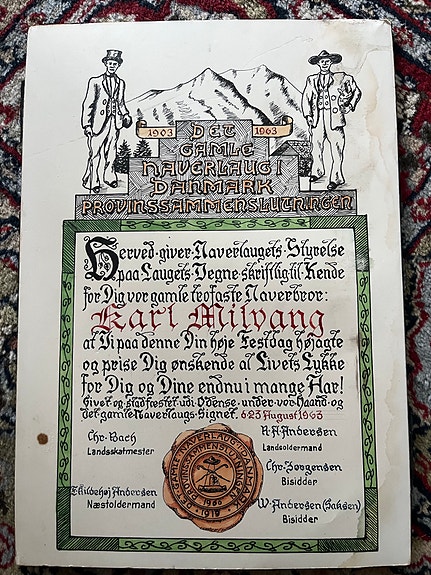 1903 1963
DET
GAMLE
NAVERLAUG I
DANMARK
PROVINSSAMMENSLUTNINGEN
Herved giver Naverlaugets Styrelse
paa Laugets Vegne skriftlig til Kende
for Dig vor gamle trofaste Naverbror:
Karl Milvang
at Vi paa denne Din høje Festdag højagte
og prise Dig ønskende al Livets Lykke
for Dig og Dine endnu i mange Aar!
Givet og stadfæstet udi Odense under vor Haand og
det gamle Naverlaugs Signet. d.23 August 1963
Chr. Bach
Landsskatmester
A. Andersen
Landsoldermand
Chr. Jørgensen
Bisidder
Andersen
Næstoldermand
W. Andersen (Saksen)
Bisidder
DET GAMLE NAVERLAUG I DANMARK
PROVINSSAMMENSLUTNINGEN
1919